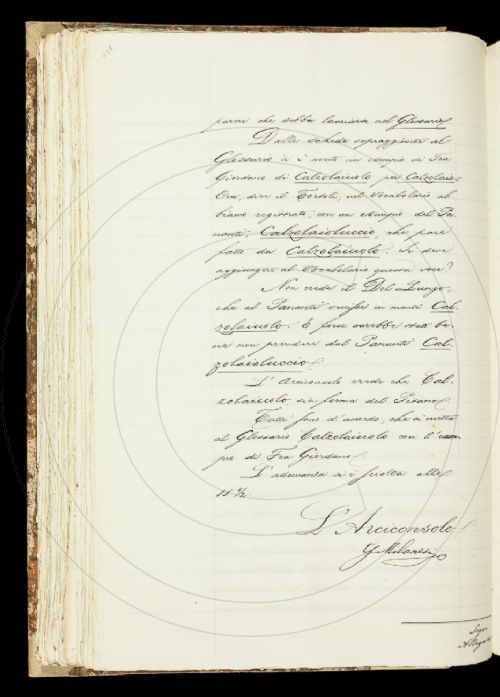 parve che debba lasciarsi nel Glossario.
Dalle schede sopraggiunte al
Glossario si è avuto un esempio di Fra
Giordano di Calzolaiuolo per Calzolaio.
Ora, dice il Tortoli, nel Vocabolario ab-
biamo registrato, con un esempio del Pa-
nanti; Calzolaioluccio, che pare
fatto da Calzolaiuolo. Si deve
aggiungere al Vocabolario questa voce?
Non crede il Del Lungo,
che al Pananti venisse in mente Cal-
zolaiuolo. E forse sarebbe stato be-
ne non prendere dal Pananti Cal-
zolaioluccio.
L'Arciconsolo crede che Cal-
zolaiuolo sia forma del Pisano.
Tutti sono d'accordo, che si metta
al Glossario Calzolaiuolo con l'esem-
pio di Fra Giordano.
L'adunanza si è sciolta alle
11 ½.
L'Arciconsolo
G. Milanesi